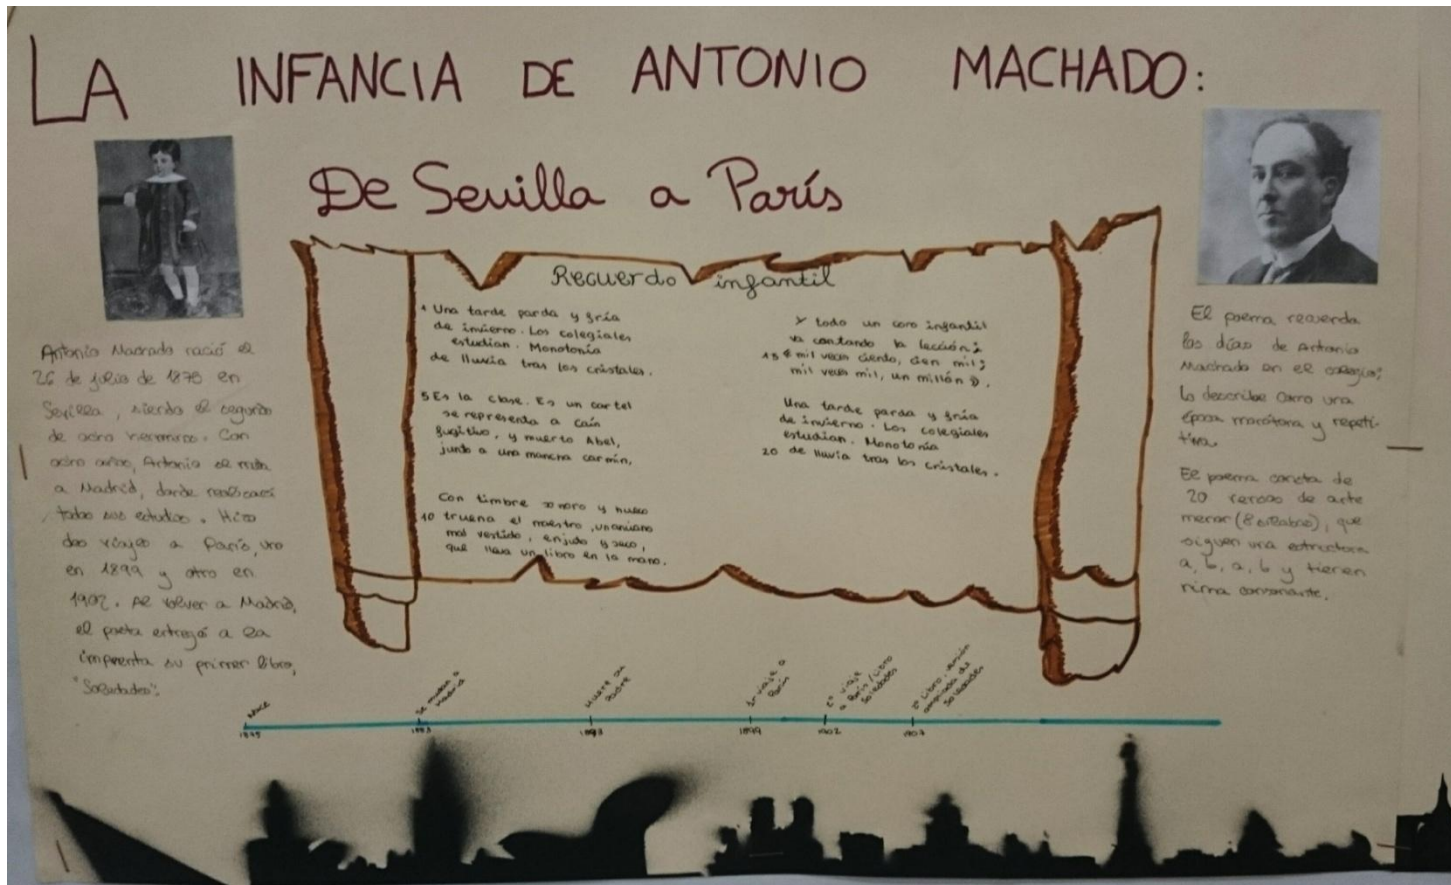 LA INFANCIA DE ANTONIO MACHADO:
De Sevilla a París
Antonio Machado nació el
26 de julio de 1875 en
Sevilla, siendo el segundo
de ocho hermanos. Con
ocho años, Antonio se muda
a Madrid, donde realizará
todos sus estudios. Hizo
dos viajes a París, uno
en 1899 y otro en
1902. Al volver a Madrid,
el poeta entregó a la
imprenta su primer libro,
"Soledades".
Recuerdo infantil
Una tarde parda y fría
de invierno. Los colegiales
estudian. Monotonía
de lluvia tras los cristales.
5 Es la clase. En un cartel
se representa a Caín
fugitivo, y muerto Abel,
junto a una mancha carmín.
Con timbre sonoro y hueco
10 truena el maestro, un anciano
mal vestido, enjuto y seco,
que lleva un libro en la mano.
Y todo un coro infantil
va cantando la lección;
15 mil veces ciento, cien mil;
mil veces mil, un millón.
Una tarde parda y fría
de invierno. Los colegiales
estudian. Monotonía
20 de lluvia tras los cristales.
El poema recuerda
los días de Antonio
Machado en el colegio;
lo describe como una
época monótona y repeti-
tiva.
El poema consta de
20 versos de arte
menor (8 sílabas), que
siguen una estructura
a, b, a, b y tienen
rima consonante.
Nace
Se muda a
Madrid
Muere su
padre
1er viaje a
París
2º viaje
a París/libro
Soledades
2º libro, versión
ampliada de
Soledades
1875
1883
1893
1899
1902
1907